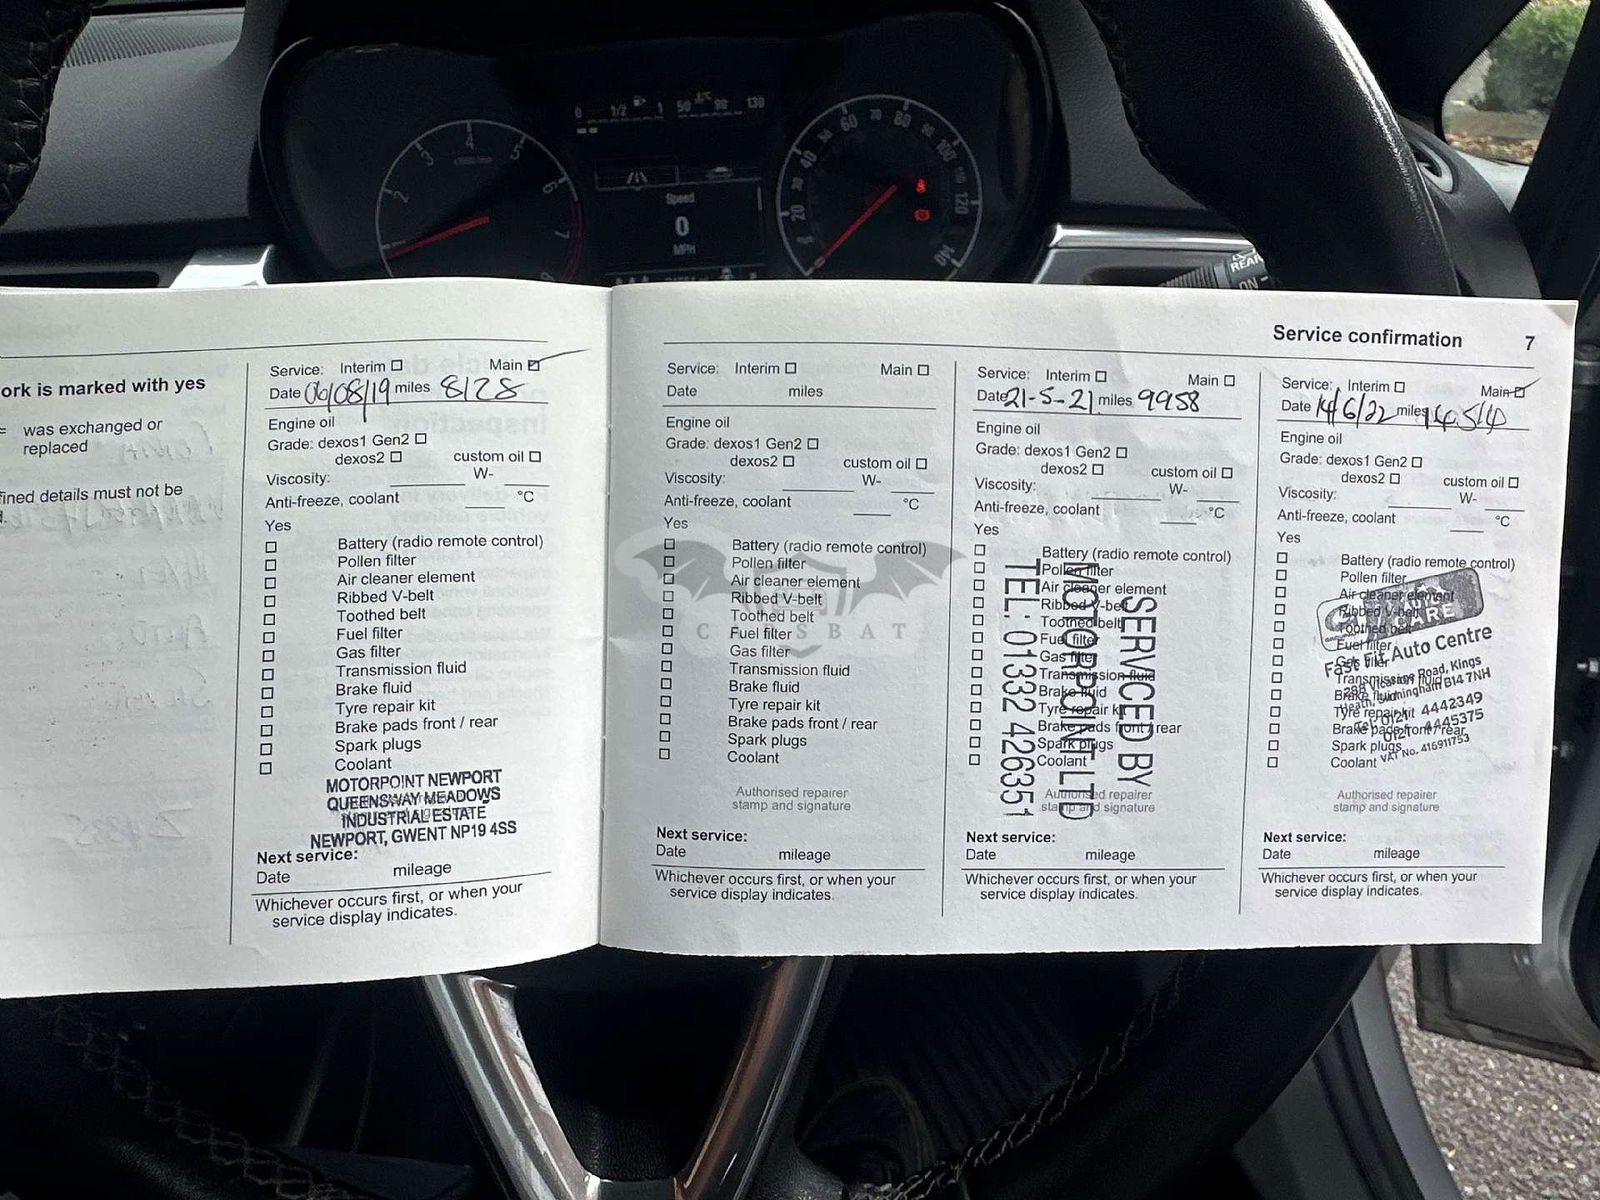 0 1/2 1 50 90 130
2 3 4 5 6 7
20 30 40 50 60 70 80 90 100 110 120 140
Speed
0
MPH
REAR
ON
ork is marked with yes
= was exchanged or
replaced
ined details must not be
Service: Interim ☐ Main ☑
Date 06/08/19 miles 8128
Engine oil
Grade: dexos1 Gen2 ☐
dexos2 ☐ custom oil ☐
Viscosity: ____ W- ____
Anti-freeze, coolant ____ °C
Yes
☐ Battery (radio remote control)
☐ Pollen filter
☐ Air cleaner element
☐ Ribbed V-belt
☐ Toothed belt
☐ Fuel filter
☐ Gas filter
☐ Transmission fluid
☐ Brake fluid
☐ Tyre repair kit
☐ Brake pads front / rear
☐ Spark plugs
☐ Coolant
MOTORPOINT NEWPORT
QUEENSWAY MEADOWS
INDUSTRIAL ESTATE
NEWPORT, GWENT NP19 4SS
Next service:
Date mileage
Whichever occurs first, or when your
service display indicates.
Service confirmation 7
Service: Interim ☐ Main ☐
Date miles
Engine oil
Grade: dexos1 Gen2 ☐
dexos2 ☐ custom oil ☐
Viscosity: ____ W- ____
Anti-freeze, coolant ____ °C
Yes
☐ Battery (radio remote control)
☐ Pollen filter
☐ Air cleaner element
☐ Ribbed V-belt
☐ Toothed belt
☐ Fuel filter
☐ Gas filter
☐ Transmission fluid
☐ Brake fluid
☐ Tyre repair kit
☐ Brake pads front / rear
☐ Spark plugs
☐ Coolant
CARSBAT
Authorised repairer
stamp and signature
Next service:
Date mileage
Whichever occurs first, or when your
service display indicates.
Service: Interim ☐ Main ☐
Date 21-5-21 miles 9958
Engine oil
Grade: dexos1 Gen2 ☐
dexos2 ☐ custom oil ☐
Viscosity: ____ W- ____
Anti-freeze, coolant ____ °C
Yes
☐ Battery (radio remote control)
☐ Pollen filter
☐ Air cleaner element
☐ Ribbed V-belt
☐ Toothed belt
☐ Fuel filter
☐ Gas filter
☐ Transmission fluid
☐ Brake fluid
☐ Tyre repair kit
☐ Brake pads front / rear
☐ Spark plugs
☐ Coolant
SERVICED BY
MOTORPOINT LTD
TEL: 01332 426351
Authorised repairer
stamp and signature
Next service:
Date mileage
Whichever occurs first, or when your
service display indicates.
Service: Interim ☐ Main ☑
Date 14/6/22 miles 14514
Engine oil
Grade: dexos1 Gen2 ☐
dexos2 ☐ custom oil ☐
Viscosity: ____ W- ____
Anti-freeze, coolant ____ °C
Yes
☐ Battery (radio remote control)
☐ Pollen filter
☐ Air cleaner element
☐ Ribbed V-belt
☐ Toothed belt
☐ Fuel filter
☐ Gas filter
☐ Transmission fluid
☐ Brake fluid
☐ Tyre repair kit
☐ Brake pads front / rear
☐ Spark plugs
☐ Coolant
AUTO
CARE
Fast Fit Auto Centre
Vicarage Road, Kings
Heath, Birmingham B14 7NH
Tel: 0121 4442349
0121 4445375
VAT No. 416911753
Authorised repairer
stamp and signature
Next service:
Date mileage
Whichever occurs first, or when your
service display indicates.